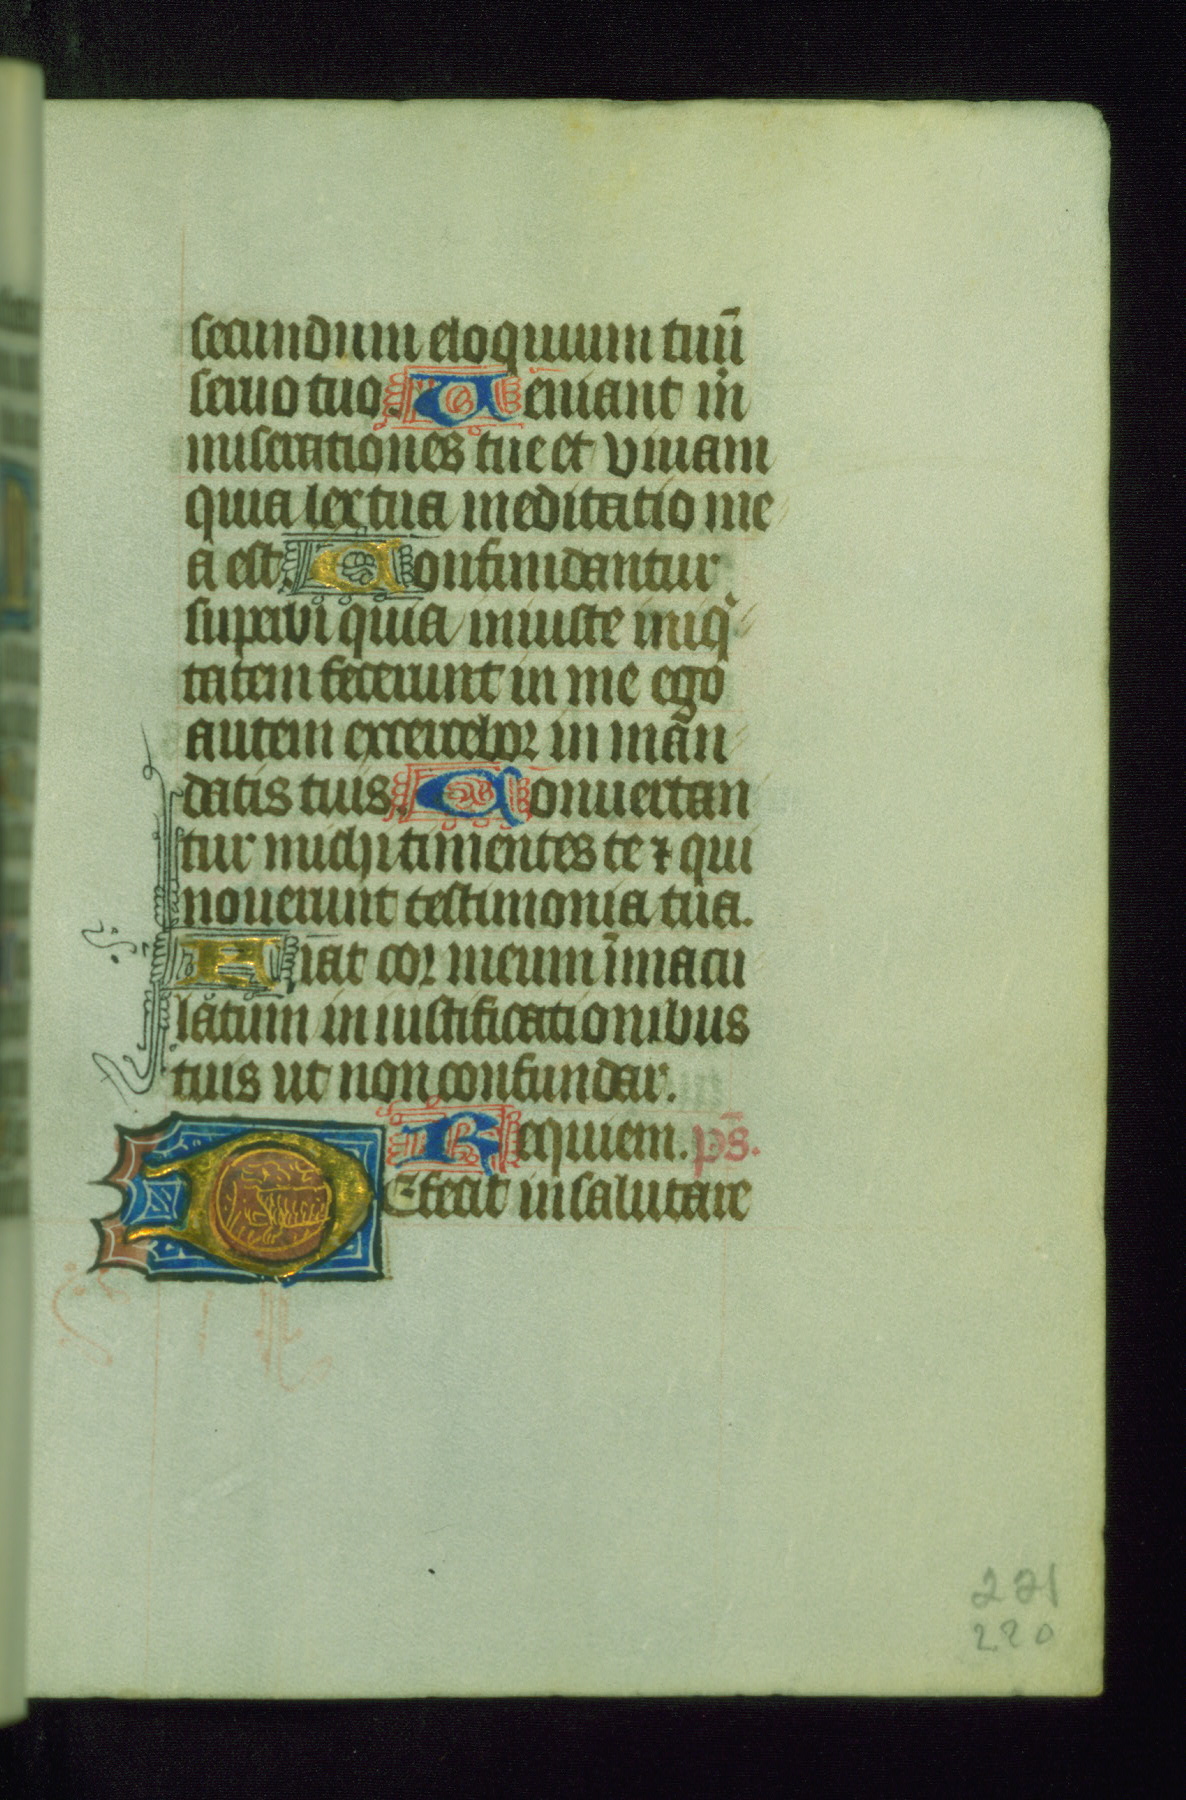 secundum eloquium tuū
seruo tuo. Veniant m̄
miserationes tue et viuam
quia lex tua meditatio me
a est. Confundantur
supervi quia iniuste iniq̇
tatem fecerunt in me ego
autem exercebor in man
datis tuis. Conuertan
tur michi timentes te ⁊ qui
nouerunt testimonia tua.
Fiat cor meum īmacu
latum in iustificationibus
tuis ut non confundar.
Requiem. ps̄.
DEfecit in salutare
221
220